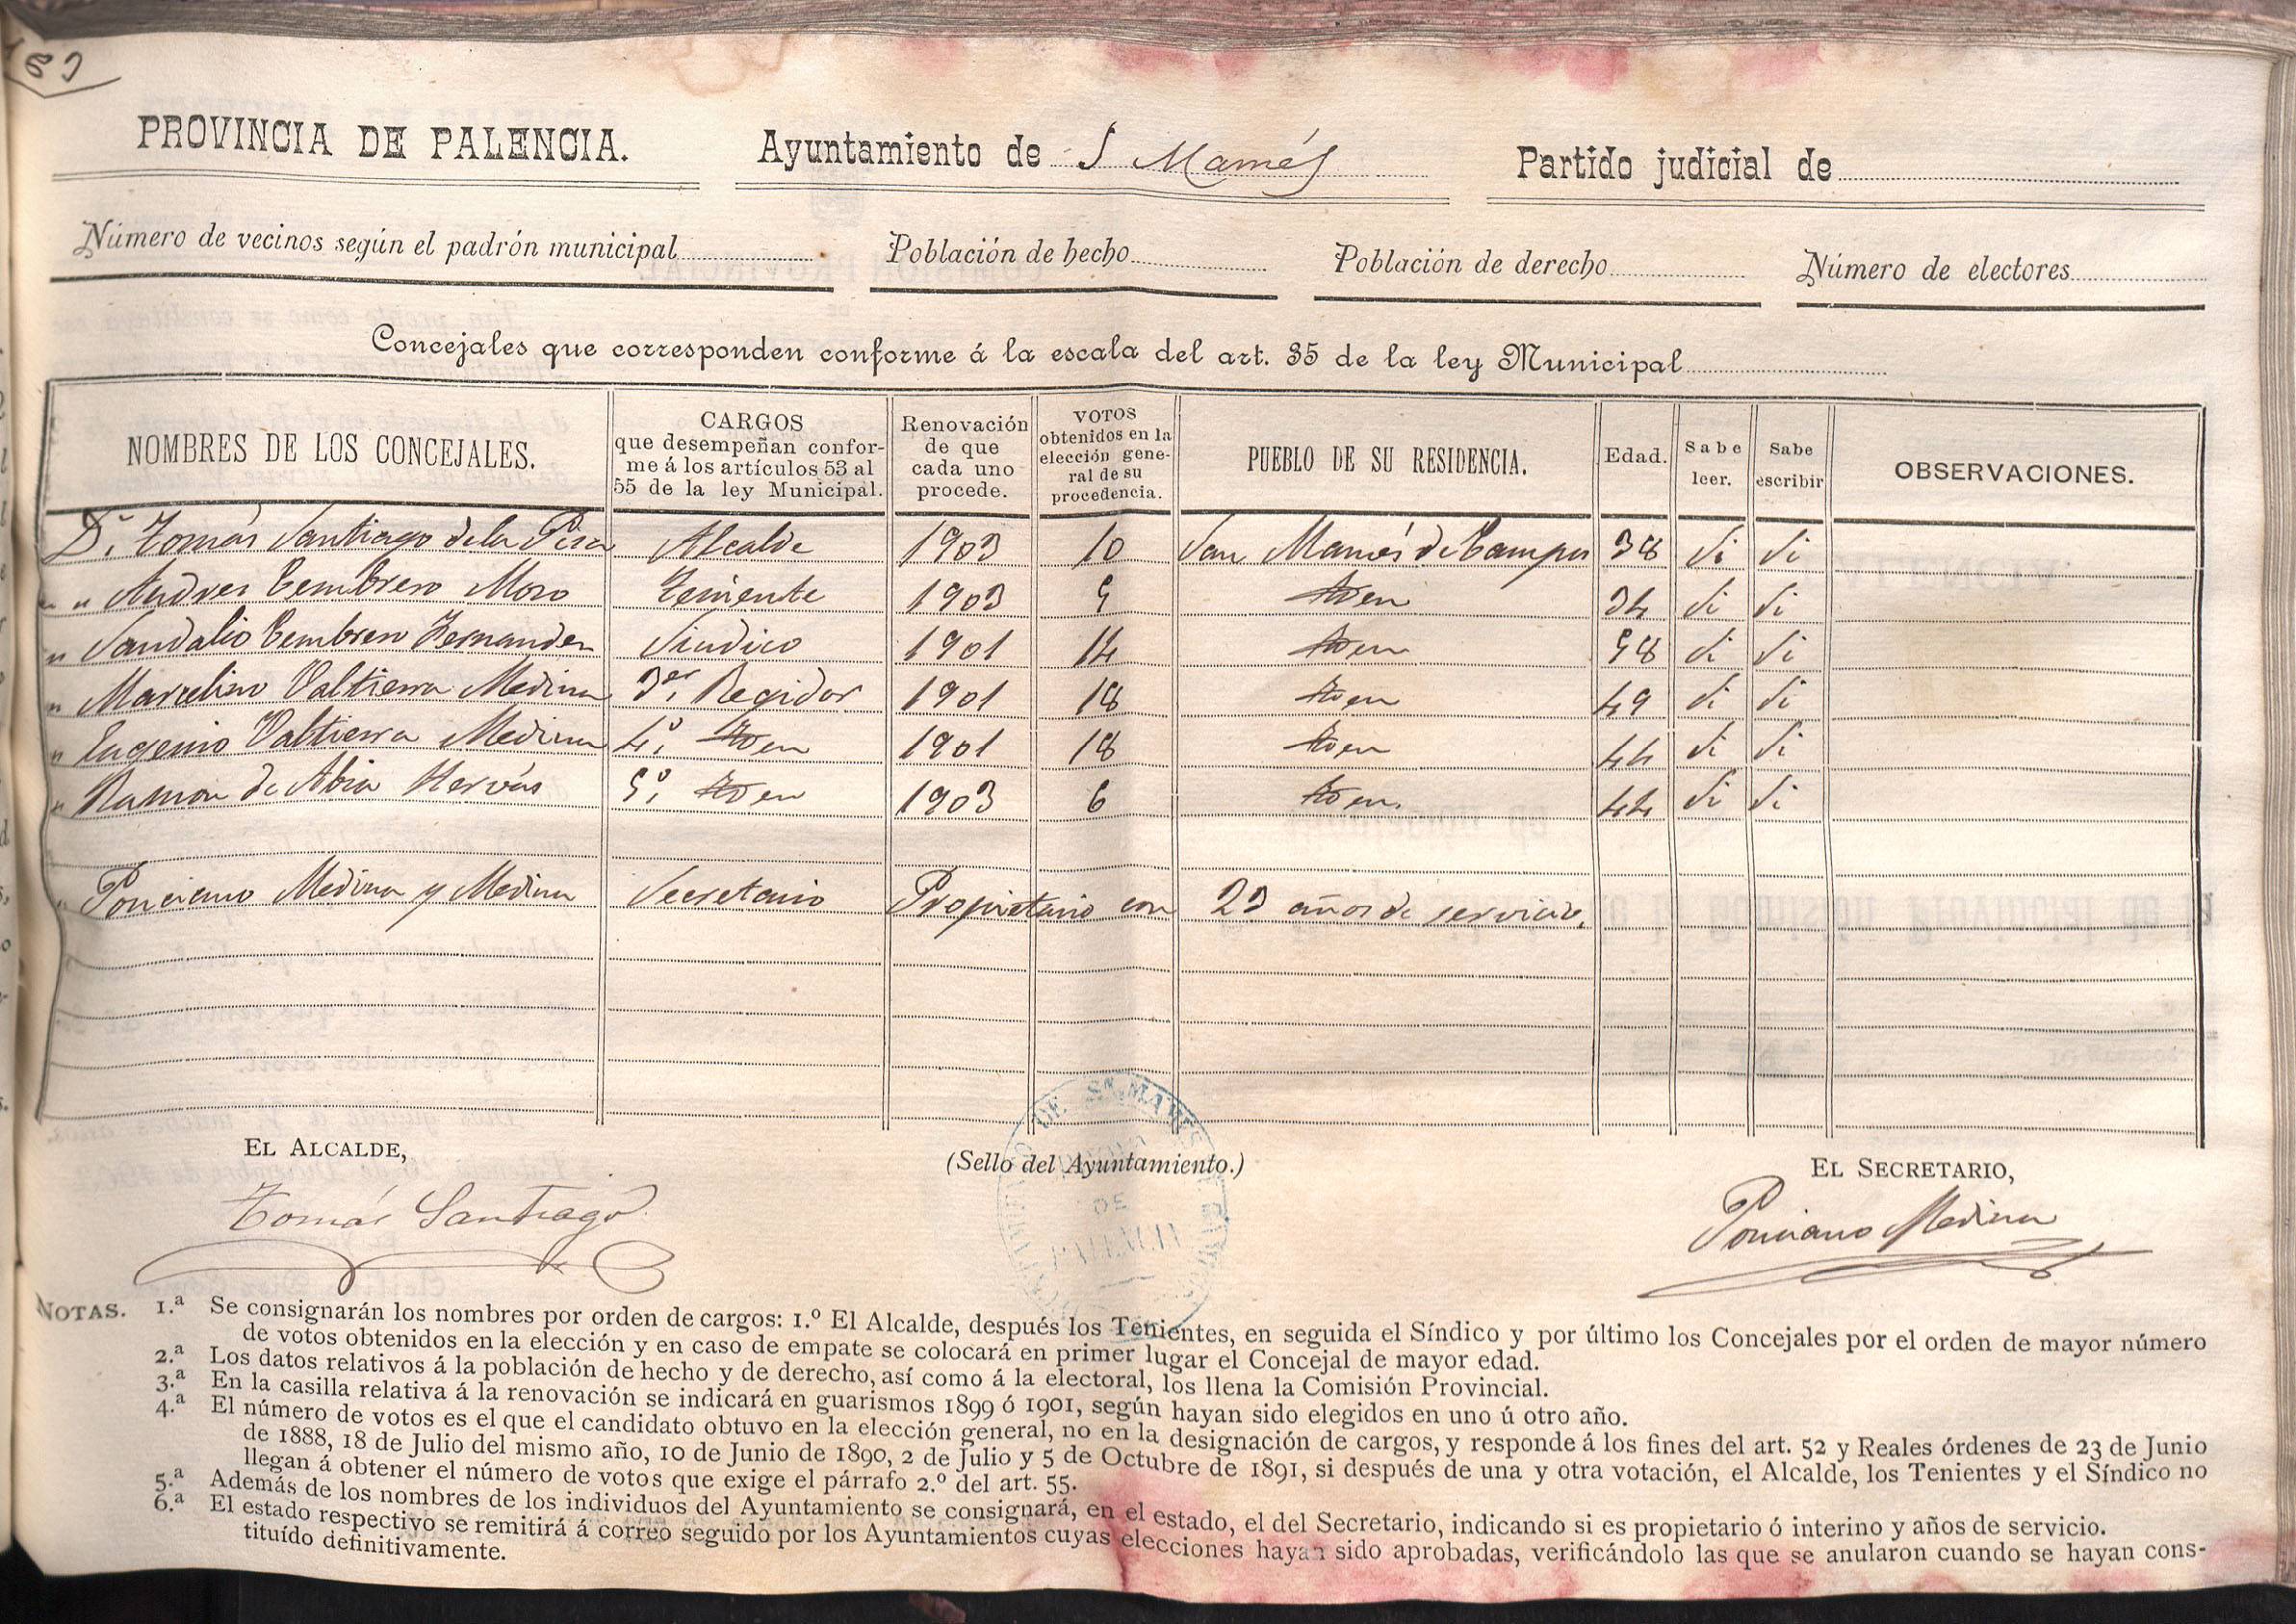 PROVINCIA DE PALENCIA. Ayuntamiento de S Mamés Partido judicial de
Número de vecinos según el padrón municipal Población de hecho Población de derecho Número de electores
Concejales que corresponden conforme á la escala del art. 35 de la ley Municipal
NOMBRES DE LOS CONCEJALES. CARGOS que desempeñan conforme á los artículos 53 al 55 de la ley Municipal. Renovación de que cada uno procede. VOTOS obtenidos en la elección general de su procedencia. PUEBLO DE SU RESIDENCIA. Edad. Sabe leer. Sabe escribir OBSERVACIONES.
D. Tomás Santiago de la Pisa Alcalde 1903 10 San Mamés de Campos 38 Si Si
" " Andres Cembrero Moro Teniente 1903 9 Iden 34 Si Si
" Sandalio Cembrero Fernandez Sindico 1901 14 Iden 58 Si Si
" Marcelino Valtierra Medina 3er. Regidor 1901 18 Iden 49 Si Si
" Eugenio Valtierra Medina 4º. Iden 1901 18 Iden 44 Si Si
" Ramon de Abia Hervás 5º. Iden 1903 6 Iden. 44 Si Si
" Ponciano Medina y Medina Secretario Propietario con 23 años de servicio.
EL ALCALDE, (Sello del Ayuntamiento.) EL SECRETARIO,
Tomás Santiago Ponciano Medina
DE
PALENCIA
NOTAS. 1.ª Se consignarán los nombres por orden de cargos: 1.º El Alcalde, después los Tenientes, en seguida el Síndico y por último los Concejales por el orden de mayor número
de votos obtenidos en la elección y en caso de empate se colocará en primer lugar el Concejal de mayor edad.
2.ª Los datos relativos á la población de hecho y de derecho, así como á la electoral, los llena la Comisión Provincial.
3.ª En la casilla relativa á la renovación se indicará en guarismos 1899 ó 1901, según hayan sido elegidos en uno ú otro año.
4.ª El número de votos es el que el candidato obtuvo en la elección general, no en la designación de cargos, y responde á los fines del art. 52 y Reales órdenes de 23 de Junio
de 1888, 18 de Julio del mismo año, 10 de Junio de 1890, 2 de Julio y 5 de Octubre de 1891, si después de una y otra votación, el Alcalde, los Tenientes y el Síndico no
llegan á obtener el número de votos que exige el párrafo 2.º del art. 55.
5.ª Además de los nombres de los individuos del Ayuntamiento se consignará, en el estado, el del Secretario, indicando si es propietario ó interino y años de servicio.
6.ª El estado respectivo se remitirá á correo seguido por los Ayuntamientos cuyas elecciones hayan sido aprobadas, verificándolo las que se anularon cuando se hayan cons-
tituído definitivamente.